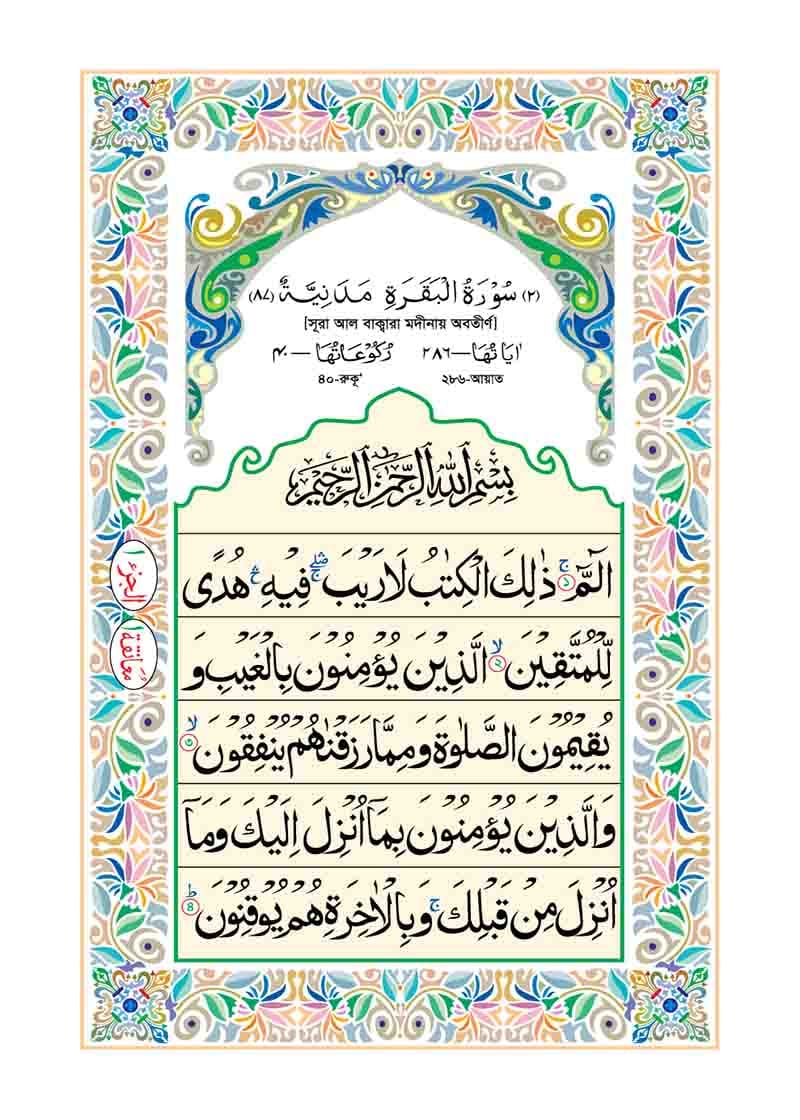 (٢) سُوْرَةُ الْبَقَرَةِ مَدَنِيَّةٌ (٨٧)
[সূরা আল বাক্বারা মদীনায় অবতীর্ণ]
اٰيَاتُهَا—٢٨٦ رُكُوْعَاتُهَا—٤٠
২৮৬-আয়াত ৪০-রুকূ'
بِسْمِ اللهِ الرَّحْمٰنِ الرَّحِيْمِ
الٓمّٓ ۚ ১ ذٰلِكَ الْكِتٰبُ لَا رَيْبَ ۛۖۚ فِيْهِ ۛ هُدًى
لِّلْمُتَّقِيْنَ ۙ ২ الَّذِيْنَ يُؤْمِنُوْنَ بِالْغَيْبِ وَ
يُقِيْمُوْنَ الصَّلٰوةَ وَمِمَّا رَزَقْنٰهُمْ يُنْفِقُوْنَ ۙ ৩
وَالَّذِيْنَ يُؤْمِنُوْنَ بِمَآ اُنْزِلَ اِلَيْكَ وَمَآ
اُنْزِلَ مِنْ قَبْلِكَ ۚ وَبِالْاٰخِرَةِ هُمْ يُوْقِنُوْنَ ؕ ৪
الجزء ١
معانقة ١